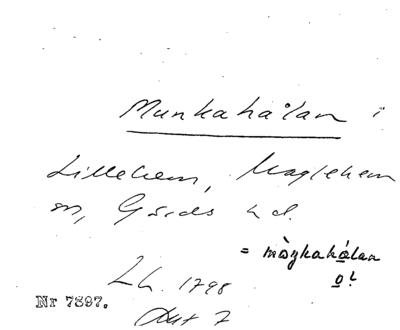 Munkahålan i
Lillehem, Maglehem
sn, Gärds hd.
= mòŋkahålan
Lh. 1798
Nr 7897.
Akt 7